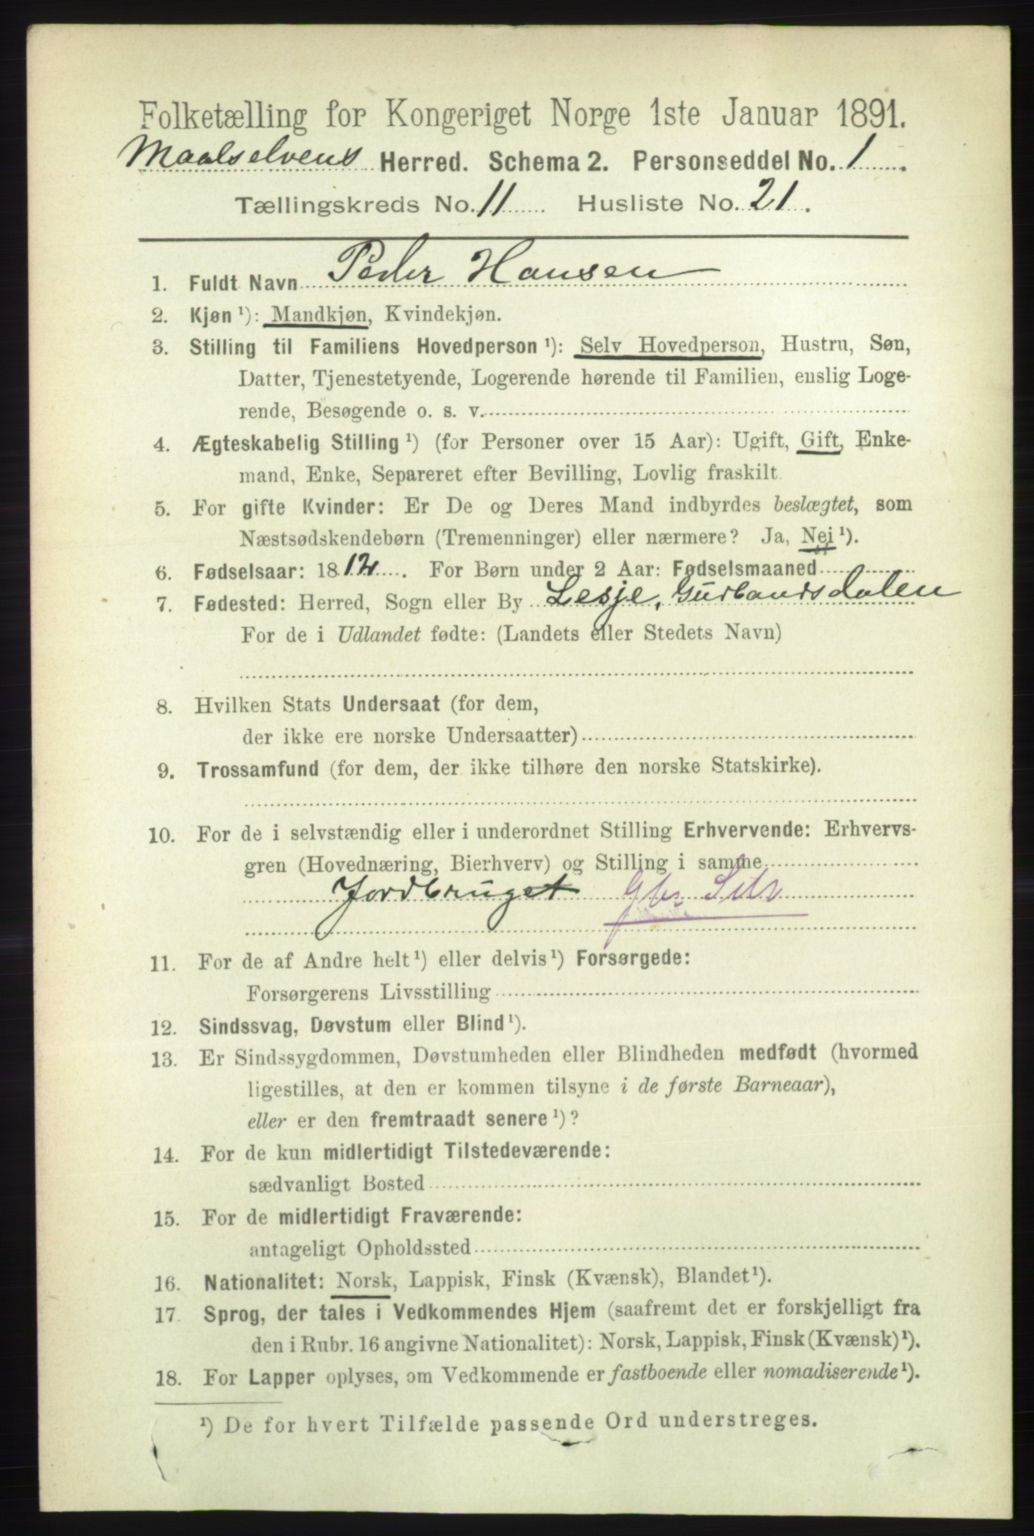 Folketælling for Kongeriget Norge 1ste Januar 1891.
Maalselvens Herred. Schema 2. Personseddel No. 1.
Tællingskreds No. 11. Husliste No. 21.
1. Fuldt Navn Peder Hansen
2. Kjøn ¹): Mandkjøn, Kvindekjøn.
3. Stilling til Familiens Hovedperson ¹): Selv Hovedperson, Hustru, Søn,
Datter, Tjenestetyende, Logerende hørende til Familien, enslig Loge-
rende, Besøgende o. s. v.
4. Ægteskabelig Stilling ¹) (for Personer over 15 Aar): Ugift, Gift, Enke-
mand, Enke, Separeret efter Bevilling, Lovlig fraskilt
5. For gifte Kvinder: Er De og Deres Mand indbyrdes beslægtet, som
Næstsødskendebørn (Tremenninger) eller nærmere? Ja, Nei ¹).
6. Fødselsaar: 1812. For Børn under 2 Aar: Fødselsmaaned
7. Fødested: Herred, Sogn eller By Lesje, Gudbandsdalen
For de i Udlandet fødte: (Landets eller Stedets Navn)
8. Hvilken Stats Undersaat (for dem,
der ikke ere norske Undersaatter)
9. Trossamfund (for dem, der ikke tilhøre den norske Statskirke).
10. For de i selvstændig eller i underordnet Stilling Erhvervende: Erhvervs-
gren (Hovednæring, Bierhverv) og Stilling i samme
Jordbruget Gbr
11. For de af Andre helt ¹) eller delvis ¹) Forsørgede:
Forsørgerens Livsstilling
12. Sindssvag, Døvstum eller Blind ¹).
13. Er Sindssygdommen, Døvstumheden eller Blindheden medfødt (hvormed
ligestilles, at den er kommen tilsyne i de første Barneaar),
eller er den fremtraadt senere ¹)?
14. For de kun midlertidigt Tilstedeværende:
sædvanligt Bosted
15. For de midlertidigt Fraværende:
antageligt Opholdssted
16. Nationalitet: Norsk, Lappisk, Finsk (Kvænsk), Blandet ¹).
17. Sprog, der tales i Vedkommendes Hjem (saafremt det er forskjelligt fra
den i Rubr. 16 angivne Nationalitet): Norsk, Lappisk, Finsk (Kvænsk) ¹).
18. For Lapper oplyses, om Vedkommende er fastboende eller nomadiserende ¹).
¹) De for hvert Tilfælde passende Ord understreges.